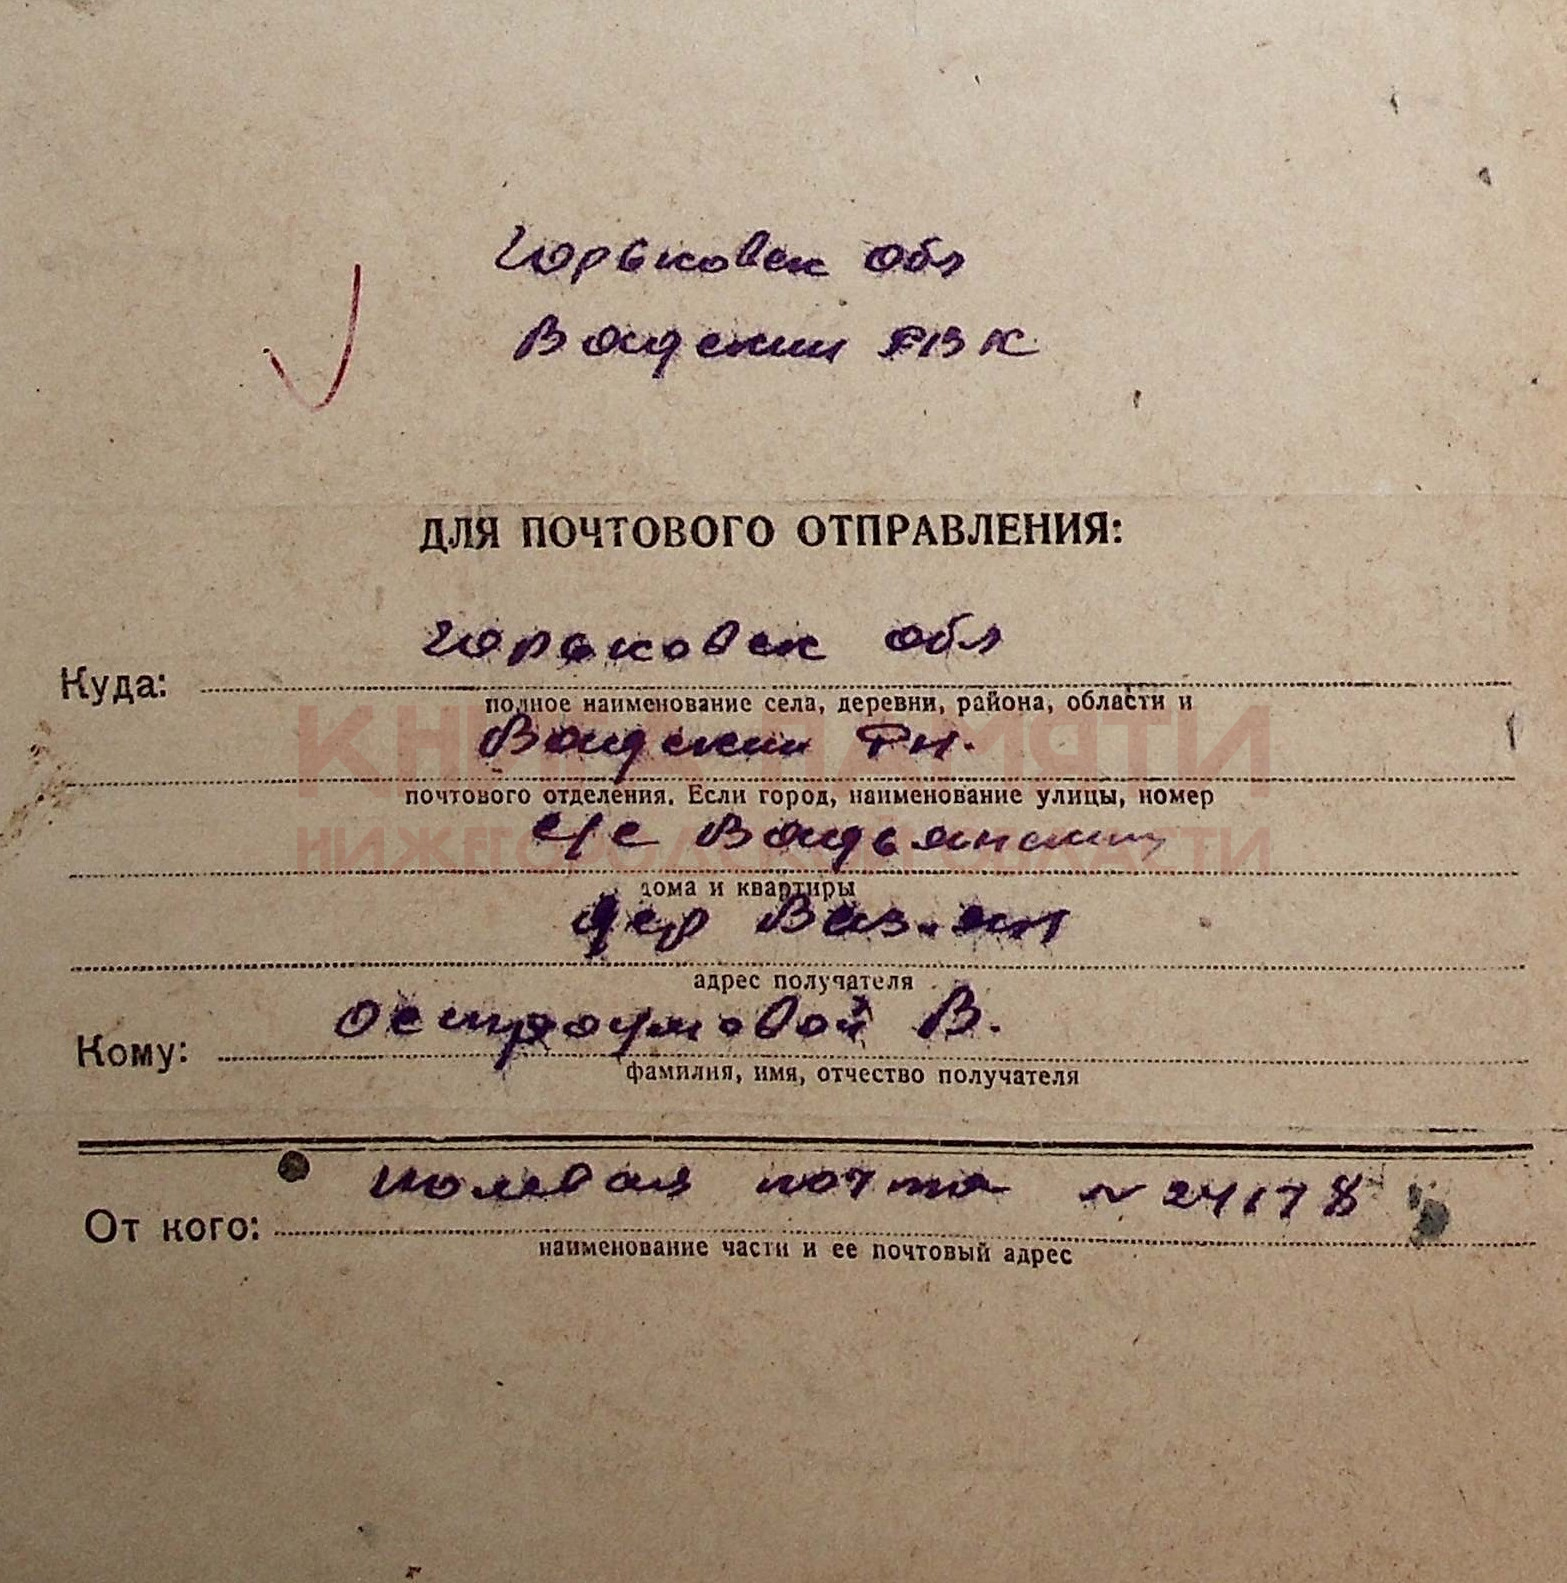 Горьковск обл
Вадский РВК
ДЛЯ ПОЧТОВОГО ОТПРАВЛЕНИЯ:
Горьковск обл
Куда:
полное наименование села, деревни, района, области и
Вадский Рн.
почтового отделения. Если город, наименование улицы, номер
с/с
дома и квартиры
дер
адрес получателя
Остроумовой В.
Кому:
фамилия, имя, отчество получателя
полевая почта № 24178
От кого:
наименование части и ее почтовый адрес
КНИГА ПАМЯТИ
НИЖЕГОРОДСКОЙ ОБЛАСТИ